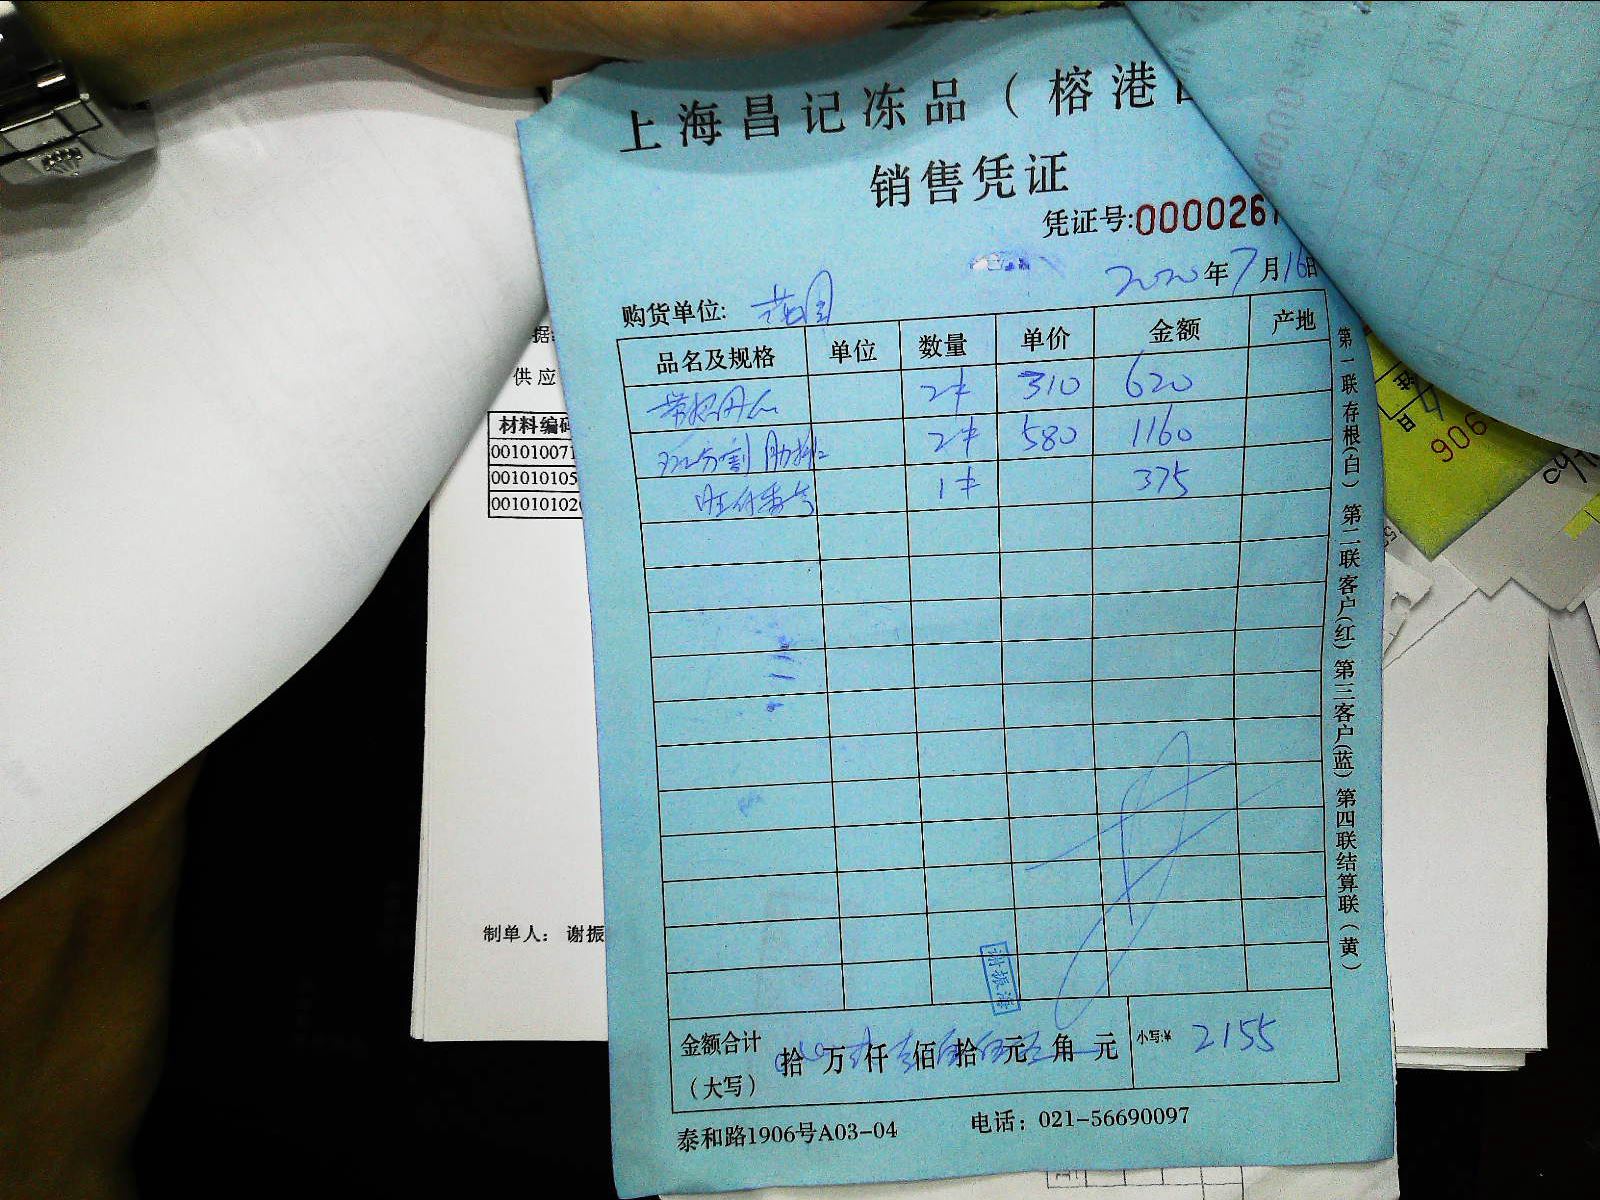 上海昌记冻品（榕港
销售凭证
凭证号:0000267
2020年7月16日
购货单位: 花园
品名及规格 单位 数量 单价 金额 产地
2件 310 620
分割肋排 2件 580 1160
1件 375
金额合计 拾 万 仟 佰 拾 元 角 元 小写:¥ 2155
（大写）
泰和路1906号A03-04 电话：021-56690097
第一联存根(白) 第二联客户(红) 第三客户(蓝) 第四联结算联（黄）
谢振
据:
供应
材料编码
001010071
001010105
00101020
制单人： 谢振
906